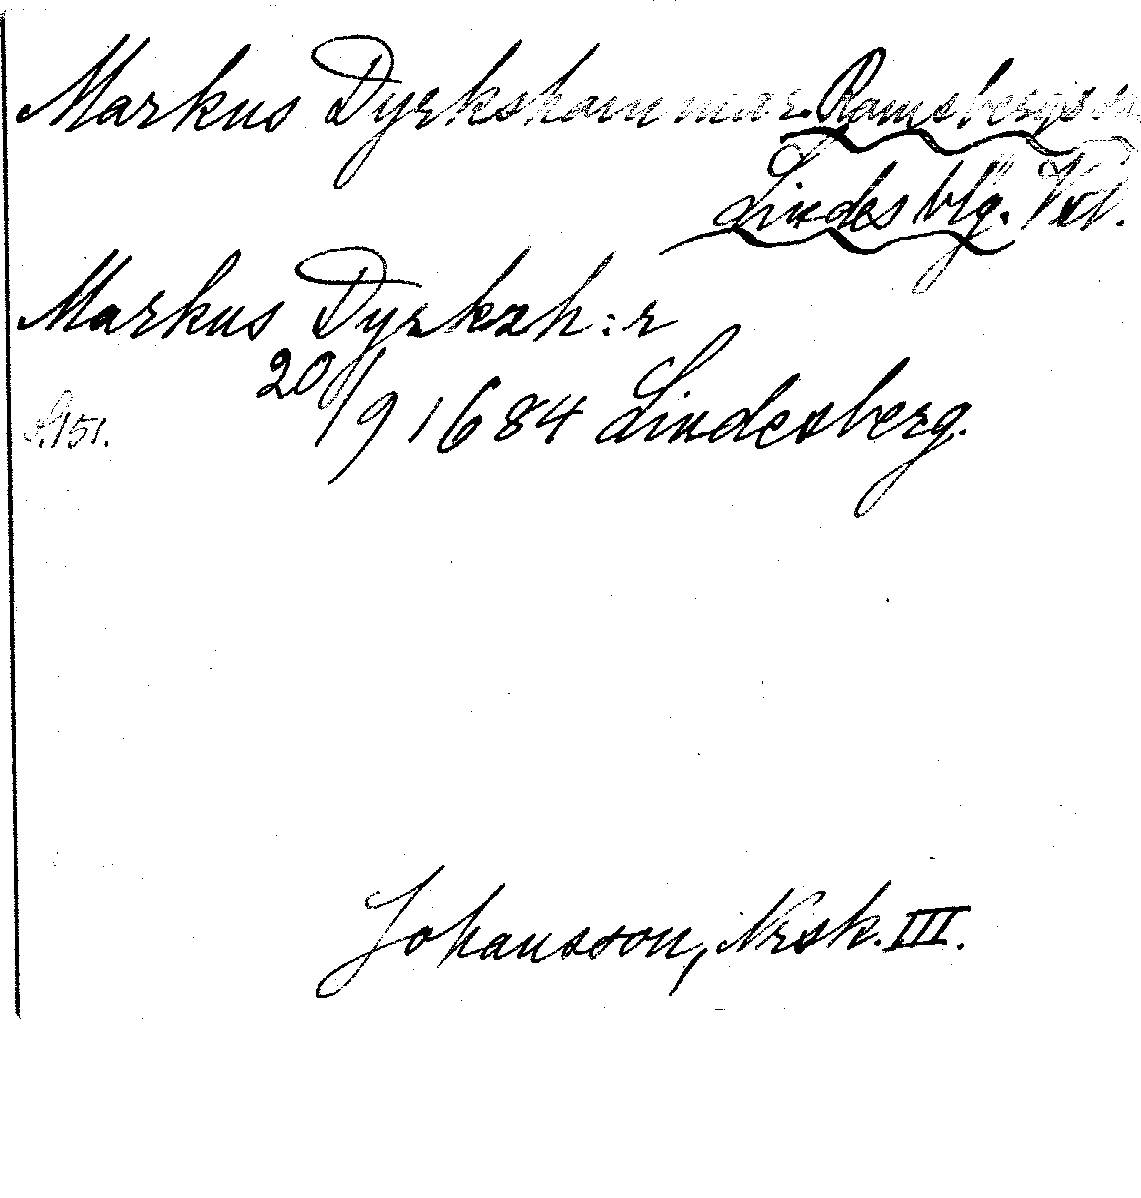 Markus Dyrkshammar. Ramsbergs sn
Lindes blg. Vstl.
Markus Dyrkzh:r
20/9 1684 Lindesberg.
s. 151.
Johansson, Nrsk. III.